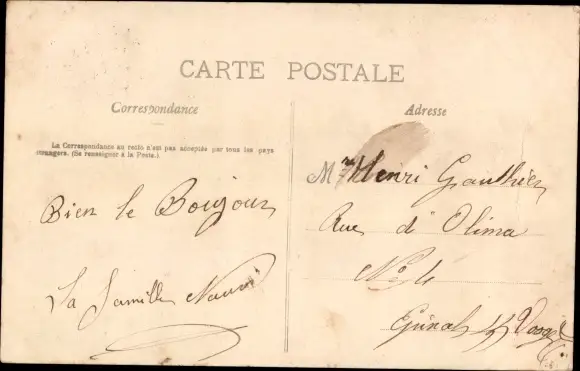 CARTE POSTALE
Correspondance
Adresse
La Correspondance au recto n'est pas acceptée par tous les pays
étrangers. (Se renseigner à la Poste.)
Bien le Bonjour
La famille
Mr Henri Gauthier
Rue d'Olima
No 4
Epinal Vosges